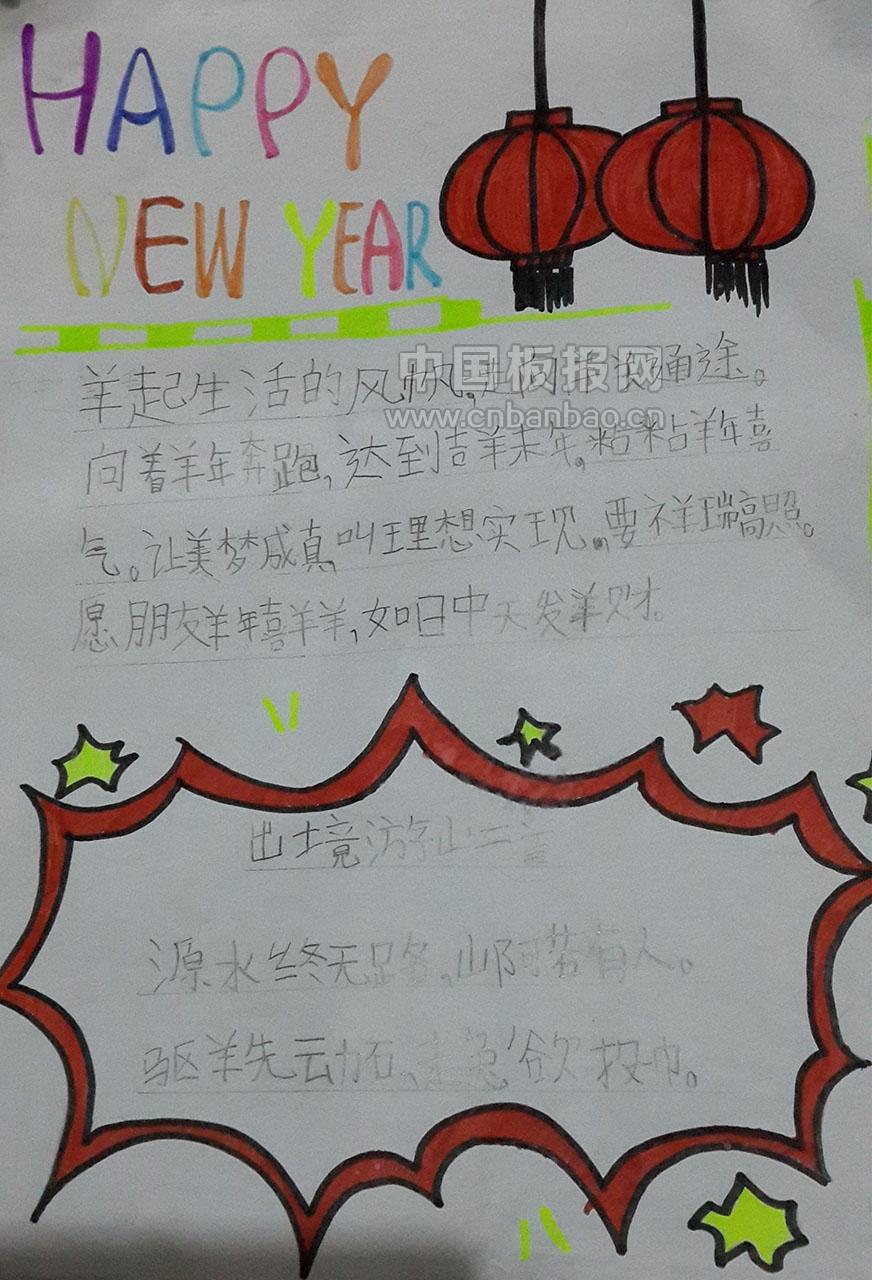 HAPPY
NEW YEAR
羊起生活的风帆,走向 通途。
中国板报网
www.cnbanbao.cn
向着羊年奔跑,达到吉羊来年,粘粘羊年喜
气。让美梦成真,叫理想实现,要祥瑞高照。
愿朋友羊年喜羊羊,如日中天发羊财。
出境游 山二首
源水终无路,山阿若有人。
驱羊先动石,走兔欲投巾。